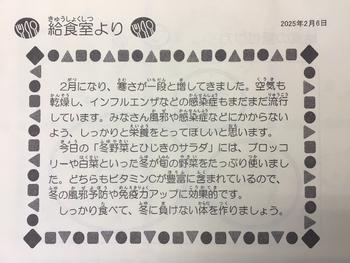 きゅうしょくしつ
給食室より
2025年2月6日
2月になり、寒さが一段と増してきました。空気も
乾燥し、インフルエンザなどの感染症もまだまだ流行
しています。みなさん風邪や感染症などにかからない
よう、しっかりと栄養をとってほしいと思います。
今日の「冬野菜とひじきのサラダ」には、ブロッコ
リーや白菜といった冬が旬の野菜をたっぷり使いまし
た。どちらもビタミンCが豊富に含まれているので、
冬の風邪予防や免疫力アップに効果的です。
しっかり食べて、冬に負けない体を作りましょう。